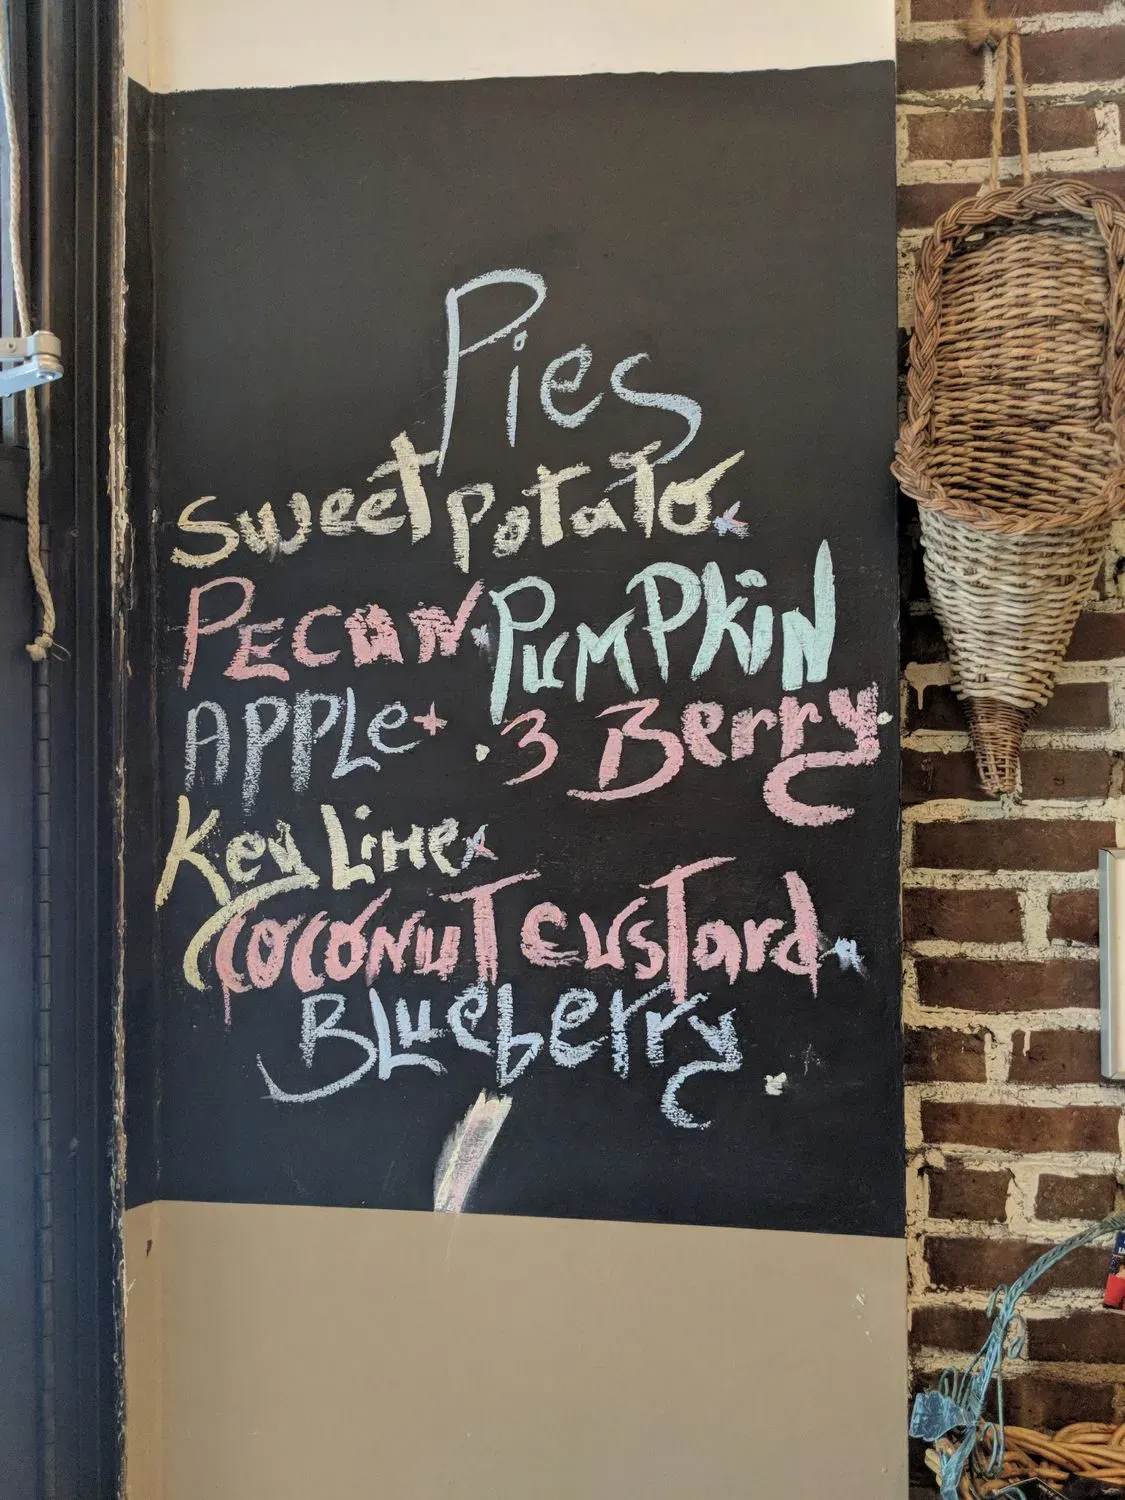 Pies
Sweet Potato
Pecan Pumpkin
Apple 3 Berry
Key Lime
Coconut Custard
Blueberry